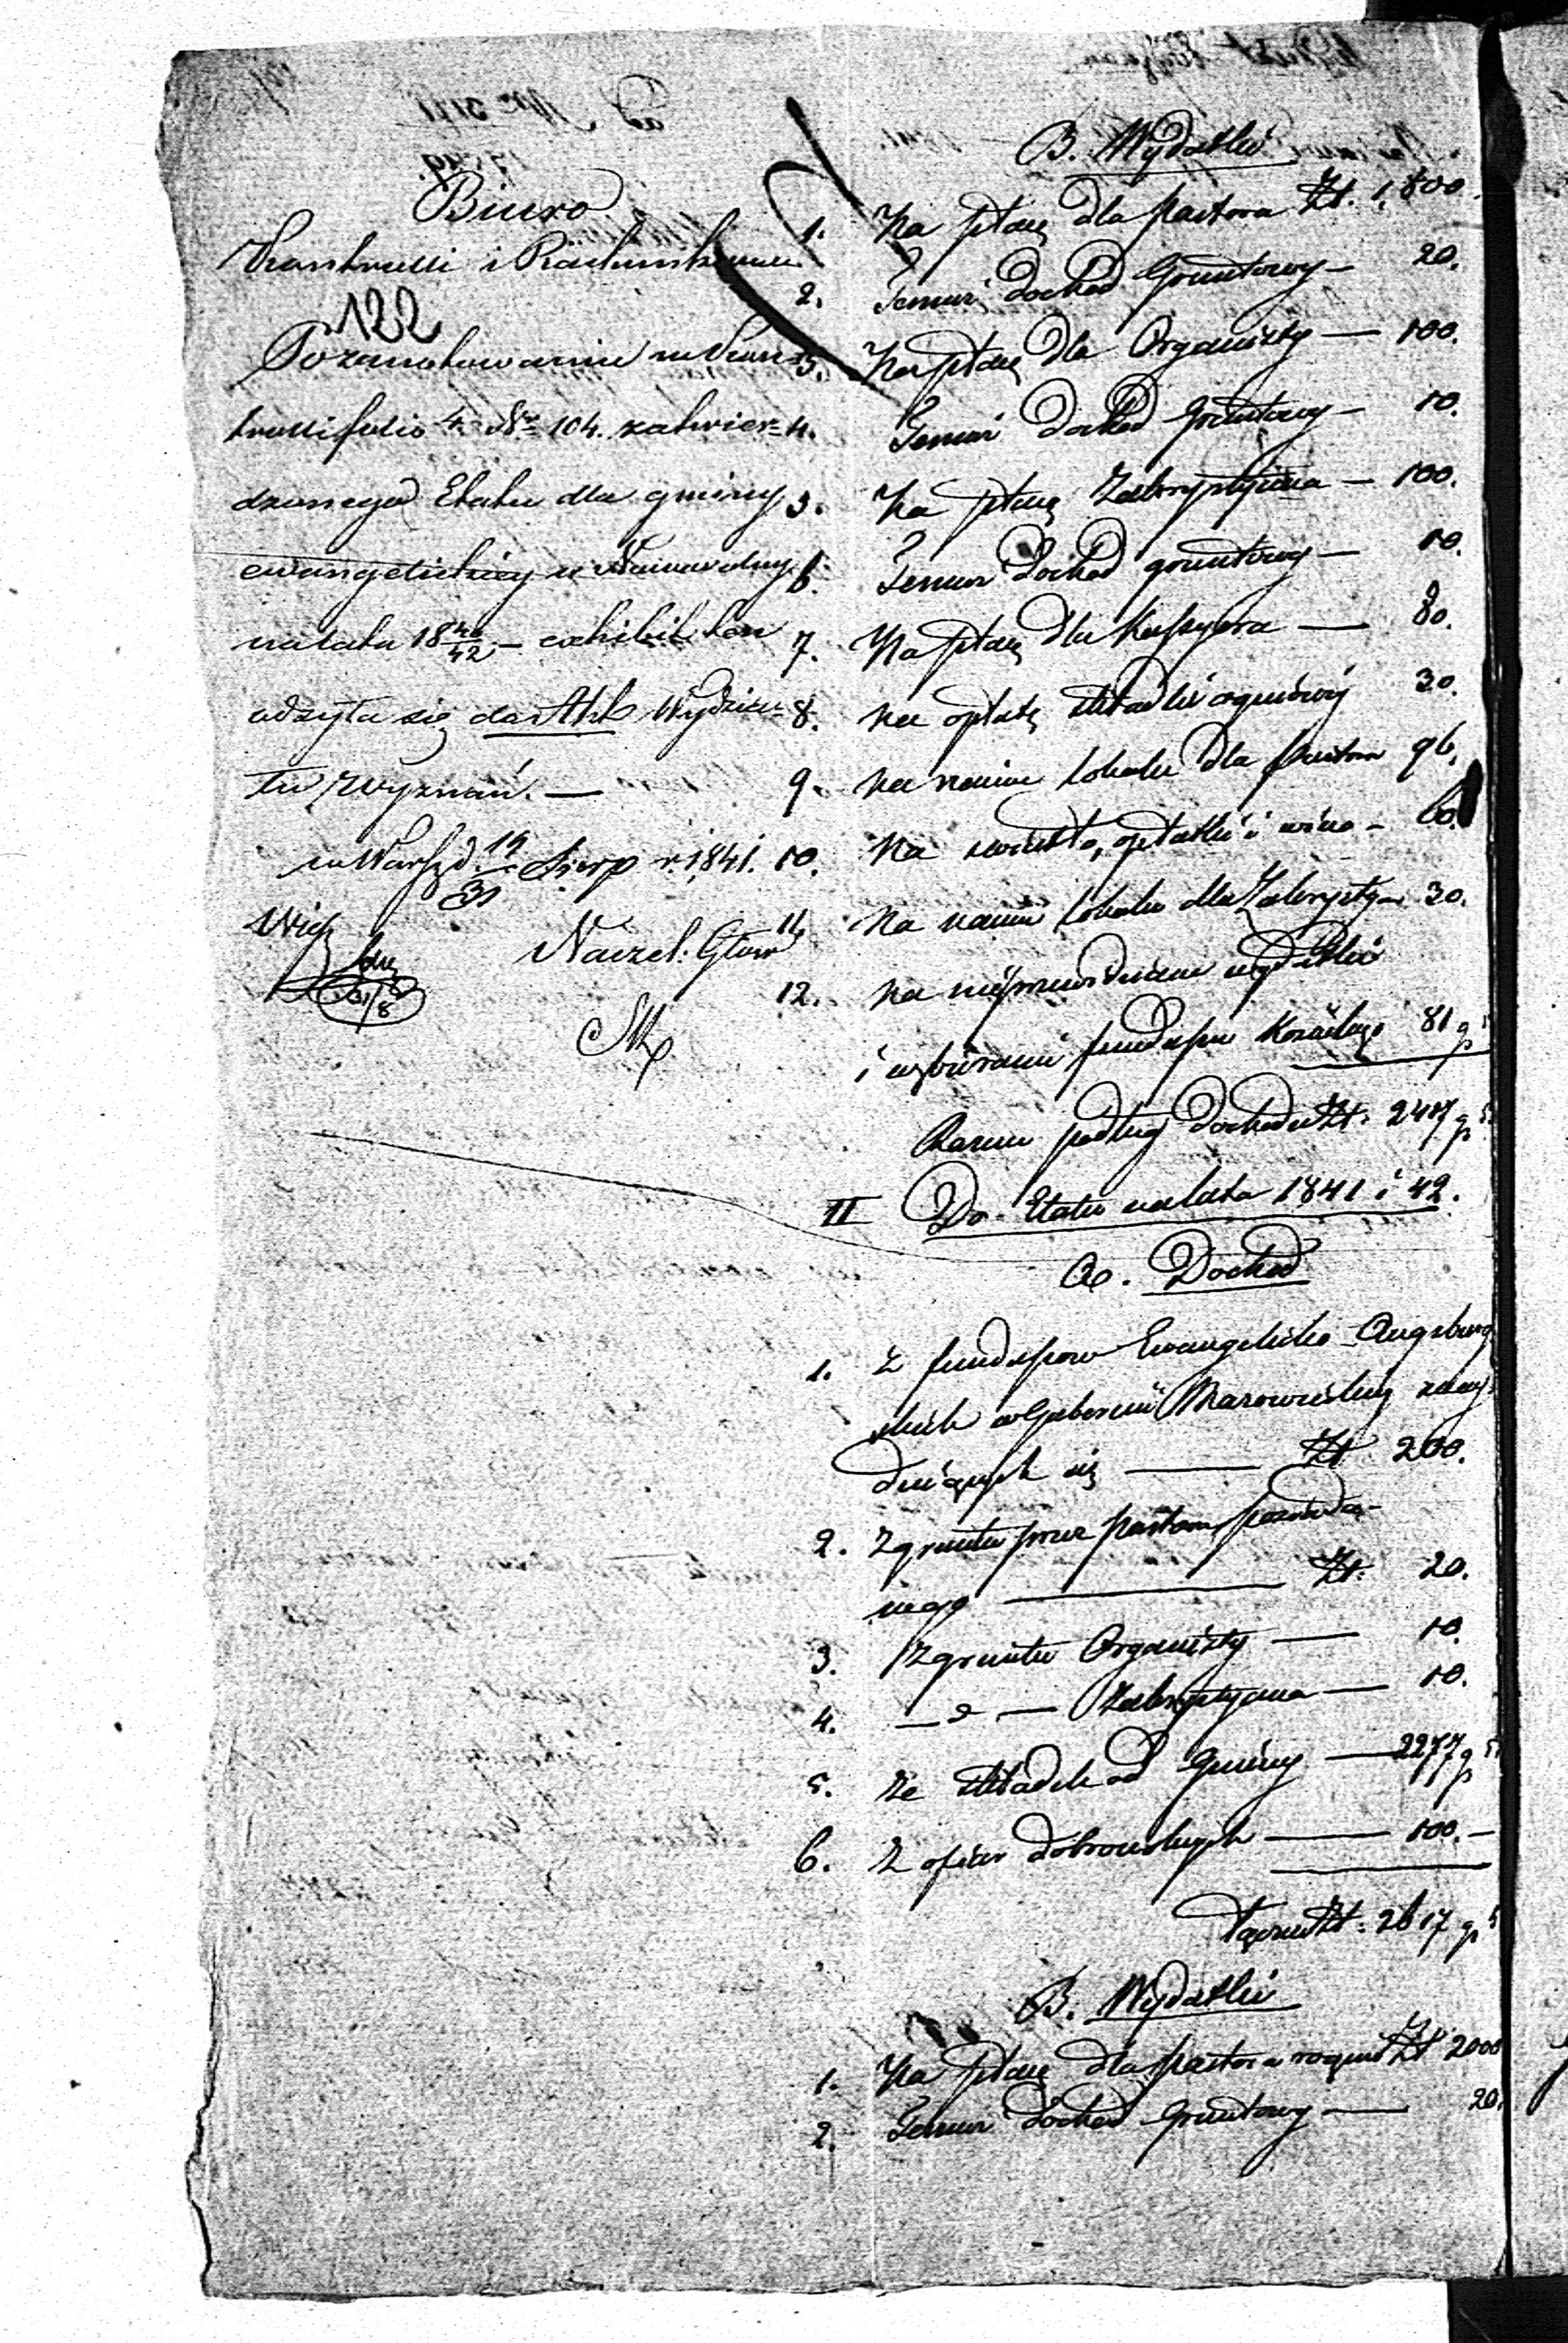 Biuro
Kontrolli i Rachunkowości
122
Po zanotowaniu w Kon-
trolli folio 4. N° 104. zatwier=
dzonego Etatu dla gminy
ewangelickiey w
na lata 18 40/42 – exhibit ten
odsyła się do Akt Wydzia-
łu Wyznań. —
w Warsz d 19/31 Sierp r. 1841.
Naczel: Głów
31/8
B. Wydatki
1. Na płacę dla pastora Zł. 1,800.
2. Temuż dochod Gruntowy – 20.
3. Na płacę dla Organisty — 100.
4. Temuż dochod Gruntowy – 10.
5. Na płacę Zakrystyana — 100.
6. Temuż Dochod gruntowy — 10.
7. Na płacę dla Kassyera — 80.
8. na opłatę składki ogniowéj 30.
9. na najem lokalu dla Pastora 96.
10. Na światło, opłatki i wino – 60.
11. Na najem lokalu dla Zakrystyan 30.
12. na nieprzewidziane wydatki
i uzbieranie funduszu Kościelnego 81 g
Razem podług Dochodu Zł: 2417 g
II Do Etatu na lata 1841 i 42.
A. Dochod
1. Z funduszow Ewangelicko-Augsburg
skich w Gubernii Mazowieckiéj znay
duiących się — Zł 200.
2. Z gruntu przez pastora posiada-
nego — Zł: 20.
3. Z gruntu Organisty — 10.
4. — „ — Zakrystyana — 10.
5. Ze składek od Gminy — 2277 g
6. Z ofiar dobrowolnych — 100. –
Łącznie Zł: 2617 g
B. Wydatki
1. Na płacę dla pastora rocznie Zł 2000
2. Temuż dochod Gruntowy — 20.